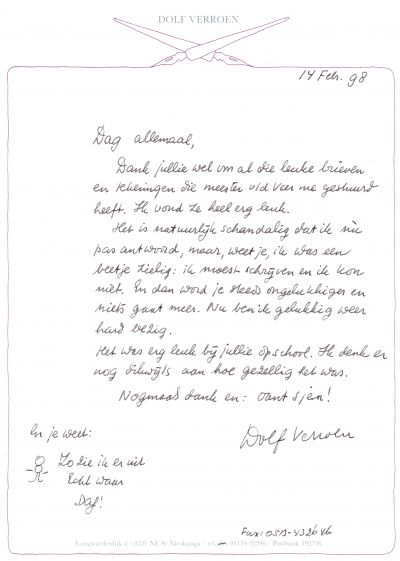 DOLF VERROEN
14 Febr. 98
Dag allemaal,
Dank jullie wel om al die leuke brieven
en tekeningen die meester v/d Veer me gestuurd
heeft. Ik vond ze heel erg leuk.
Het is natuurlijk schandalig dat ik nù
pas antwoord, maar, weet je, ik was een
beetje zielig: ik moest schrijven en ik kon
niet. En dan word je steeds ongelukkiger en
niets gaat meer. Nu ben ik gelukkig weer
hard bezig.
Het was erg leuk bij jullie op school. Ik denk er
nog dikwijls aan hoe gezellig het was.
Nogmaals dank en: oant sjen!
Dolf Verroen
En je weet:
Zo zie ik er uit
Echt waar
Daf!
Fax: 0513-432646
Langwarderdijk 2 / 8521 NE St Nicolaasga / tel. 05134-32296 / Postbank 192756